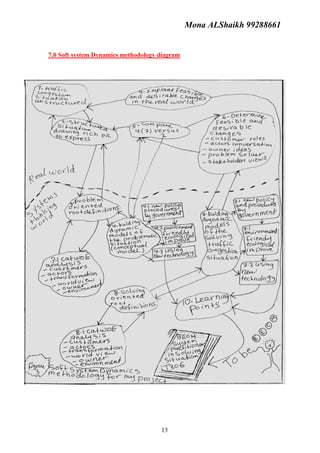 Mona ALShaikh 99288661
7.0 Soft system Dynamics methodology diagram
1- traffic
congestion
situation
unstructured
9- implant feasible
and desirable changes
in the real world
2- structured
situation
drawing rich pic
to express
5- compare
4 (2) versus
6- Determine
feasible and
desirable
changes
- customer roles
- actors conversation
- owner ideas
- problem solver
- stakeholder views
Real world
Systems
thinking
world
3- Problem
oriented
root definitions
dynamic
models of
the problematic
situation
conceptual
model
new policy
procedures
by government
friendly
improve
using
new technology
7- Building
dynamic
models
of the
solving
traffic
congestion
situation
new policy
and procedures
by
government
environment
friendly
ecological
improve
7.3 using
new
technology
3.1 CATWOE
analysis
- customers
- actors
- transformation
- worldview
- owner
- environment
8- solving
oriented
root
definitions
10. Learning
Points
8.1 CATWOE
analysis
- customers
- actors
- transformation
- world view
- owner
- environment
System
practitioner
in solving
situation
T306
To be
Figure
Soft System Dynamics
methodology for my project
13